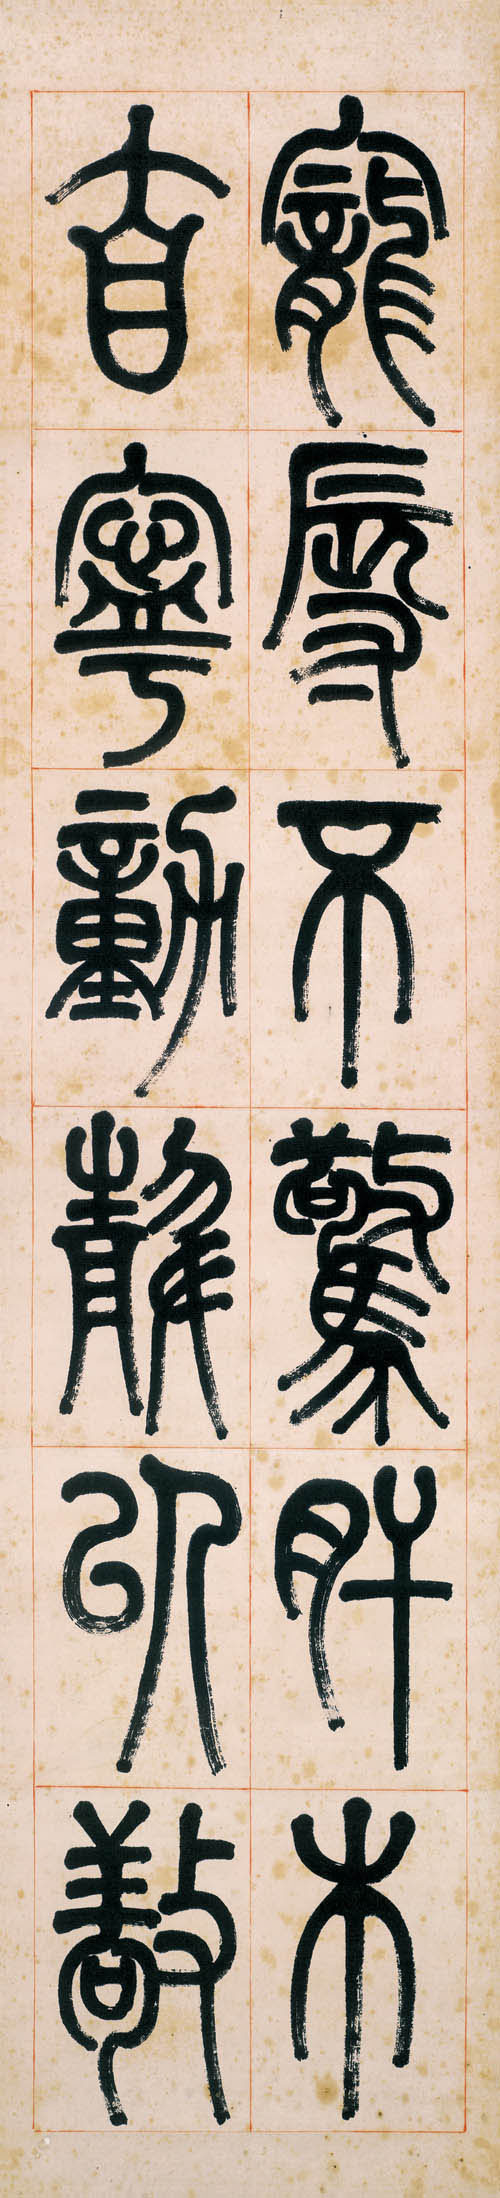 寵辱不驚肝木
自寧動靜以敬